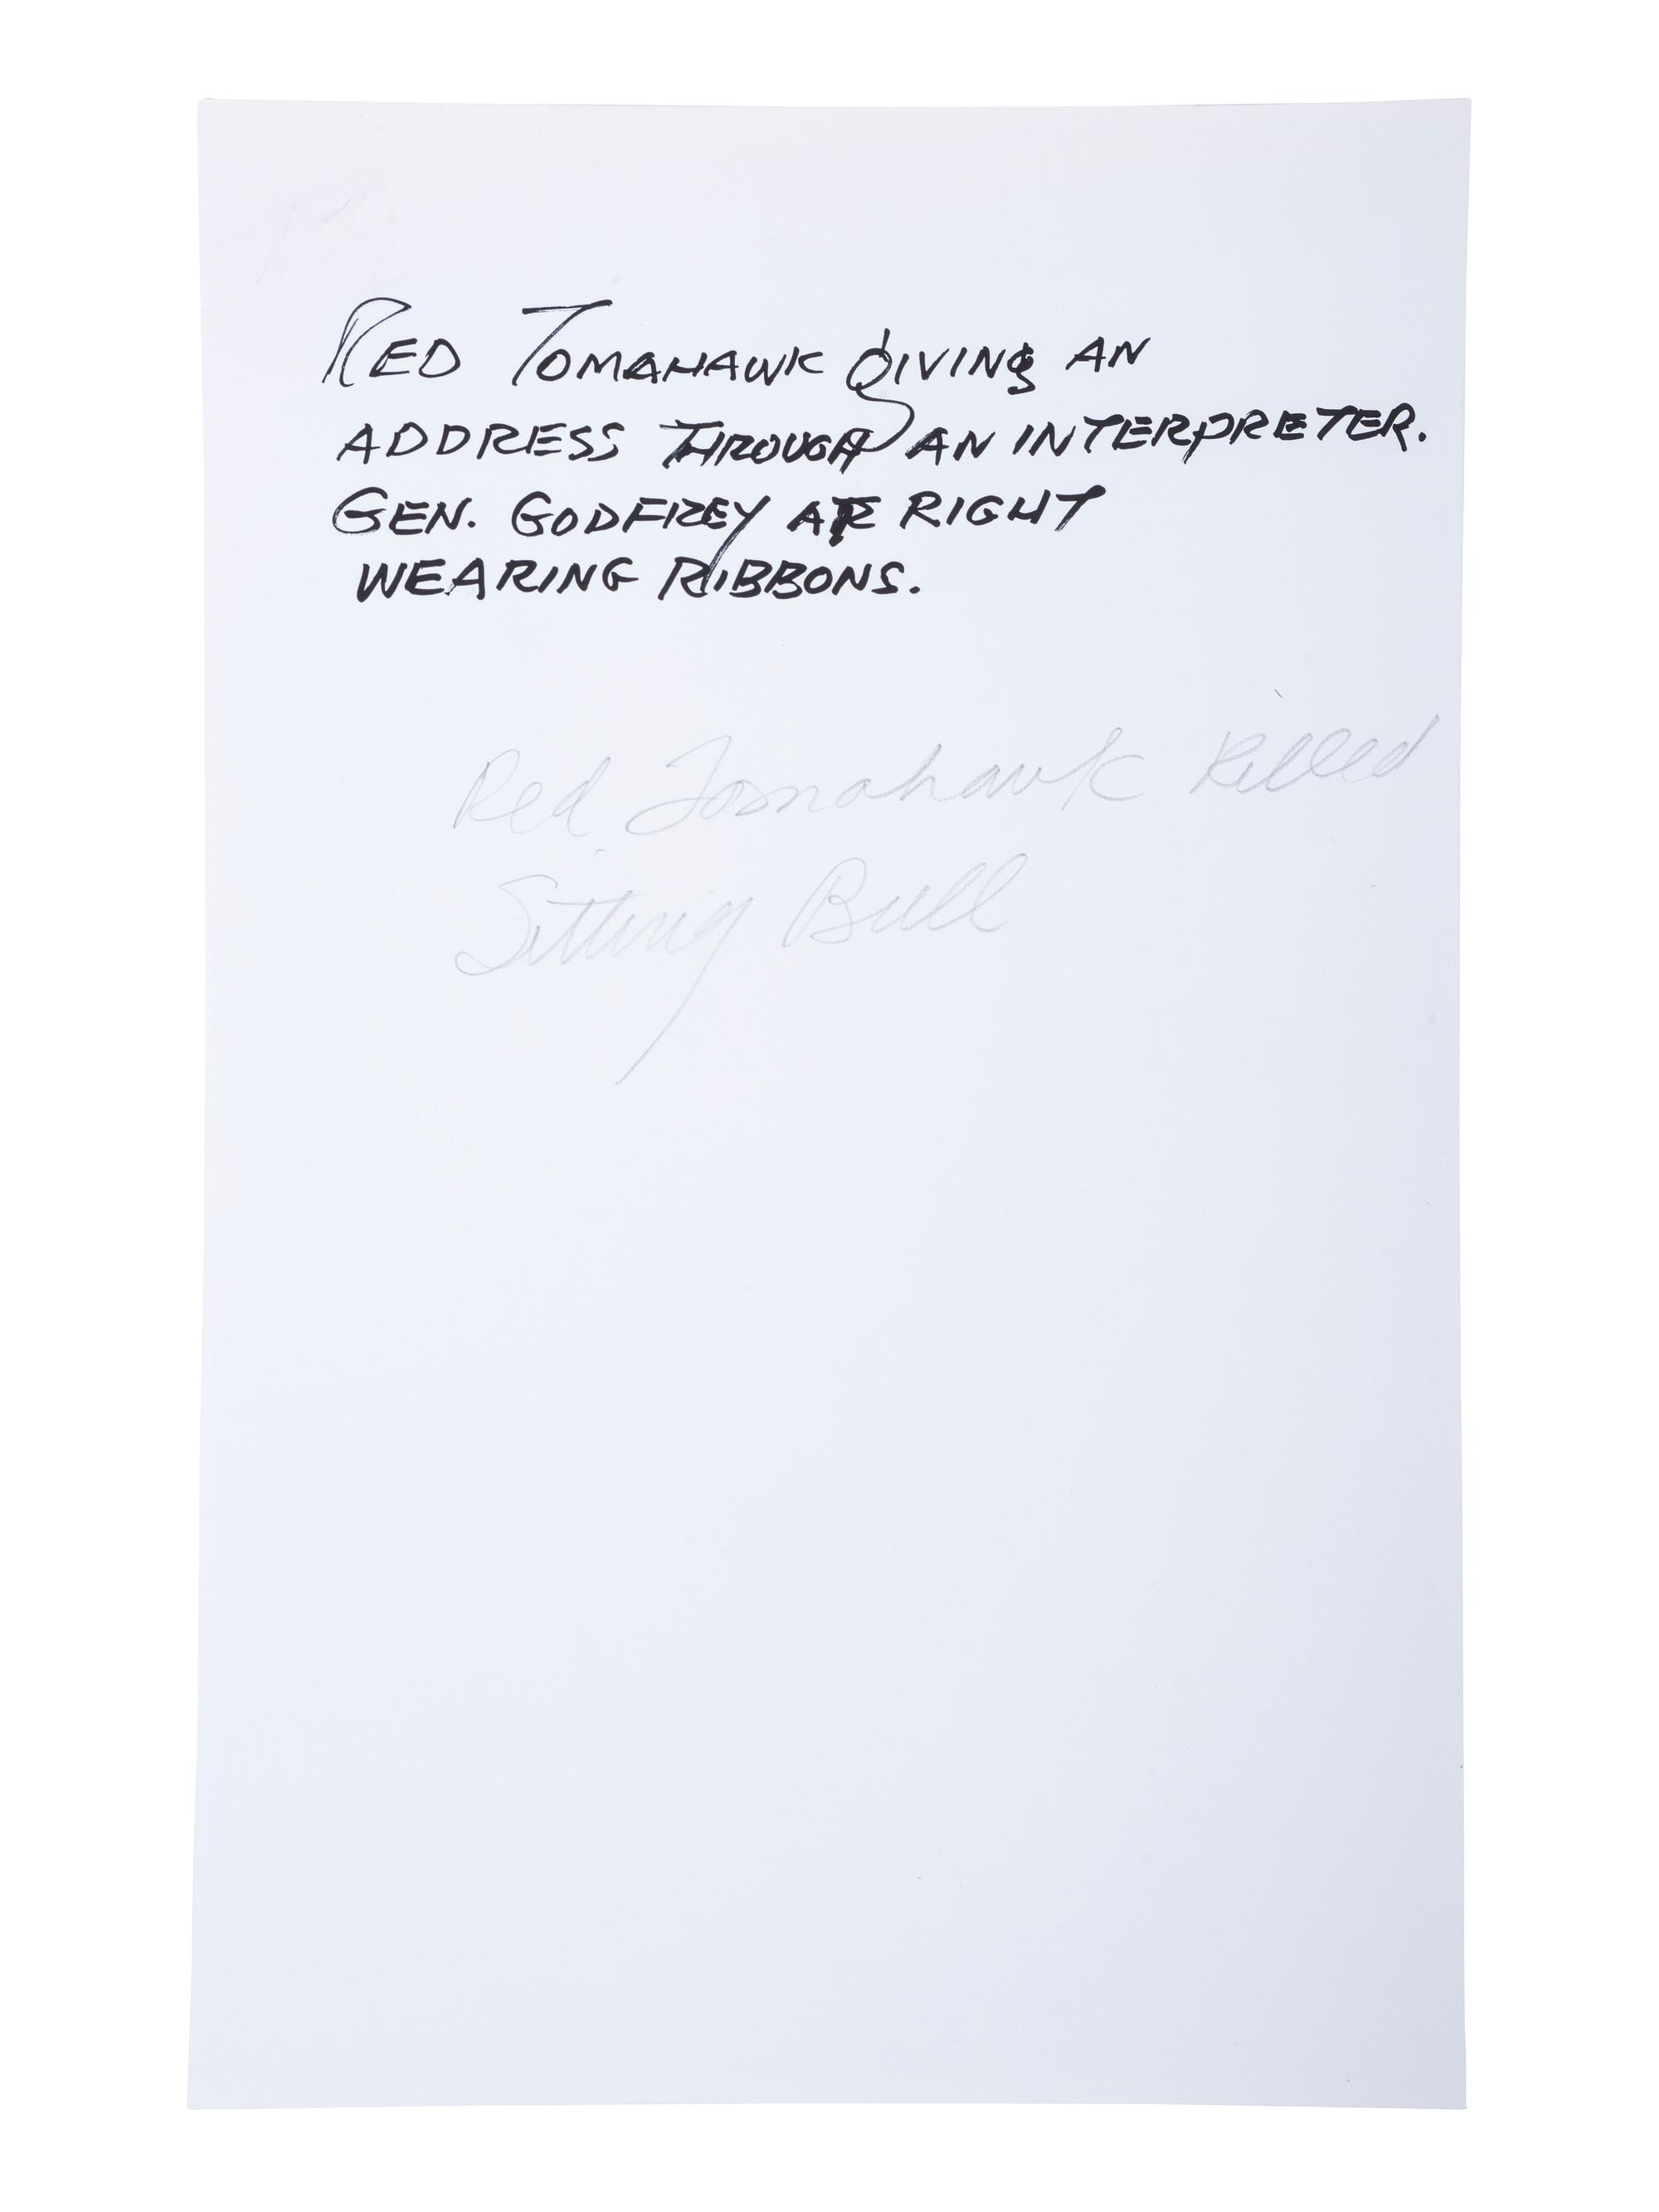 RED TOMAHAWK GIVING AN
ADDRESS THROUGH AN INTERPRETER.
GEN. GODFREY AT RIGHT
WEARING RIBBONS.
Red Tomahawk killed
Sitting Bull